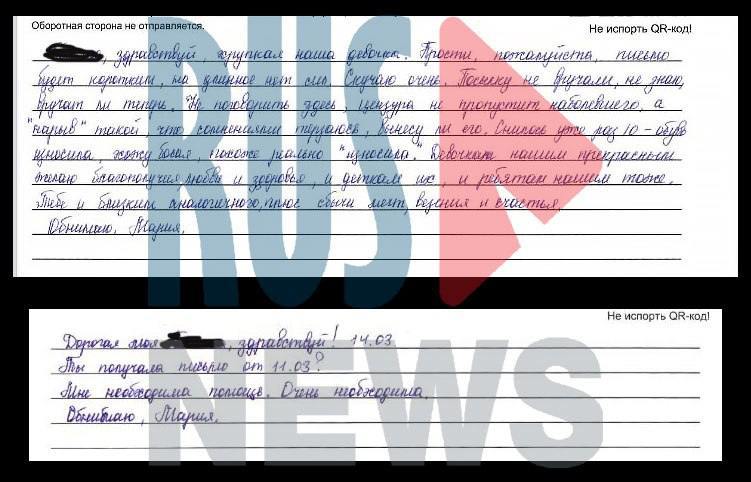 Оборотная сторона не отправляется.
Не испорть QR-код!
, здравствуй, хрупкая наша девочка. Прости, пожалуйста, письмо
будет коротким, на длинное нет сил. Скучаю очень. Посылку не вручали, не знаю,
вручат ли теперь. Не поговорить здесь, цензура не пропустит наболевшего, а
"нарыв" такой, что сомнениями терзаюсь, вынесу ли его. Снилось уже раз 10 - обувь
износила, хожу босая, похоже реально "износила." Девочкам нашим прекрасным
желаю благополучия любви и здоровья, и деткам их, и ребятам нашим тоже.
Тебе и близким аналогичного, плюс сбычи мечт, везения и счастья.
Обнимаю, Мария.
RUS
NEWS
Не испорть QR-код!
Дорогая моя , здравствуй! 14.03.
Ты получала письмо от 11.03?
Мне необходима помощь. Очень необходима.
Обнимаю, Мария.